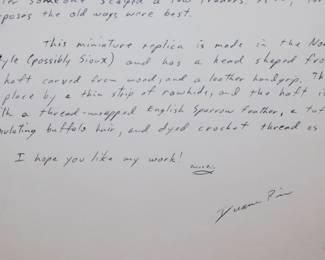 someone scalped a few
poses the old ways were best.
This miniature replica is made in the
style (possibly Sioux) and has a head shaped
haft carved from wood, and a leather handgrip.
place by a thin strip of rawhide, and the haft is
a thread-wrapped English Sparrow feather, a
mulating buffalo hair, and dyed crochet thread as
I hope you like my work!